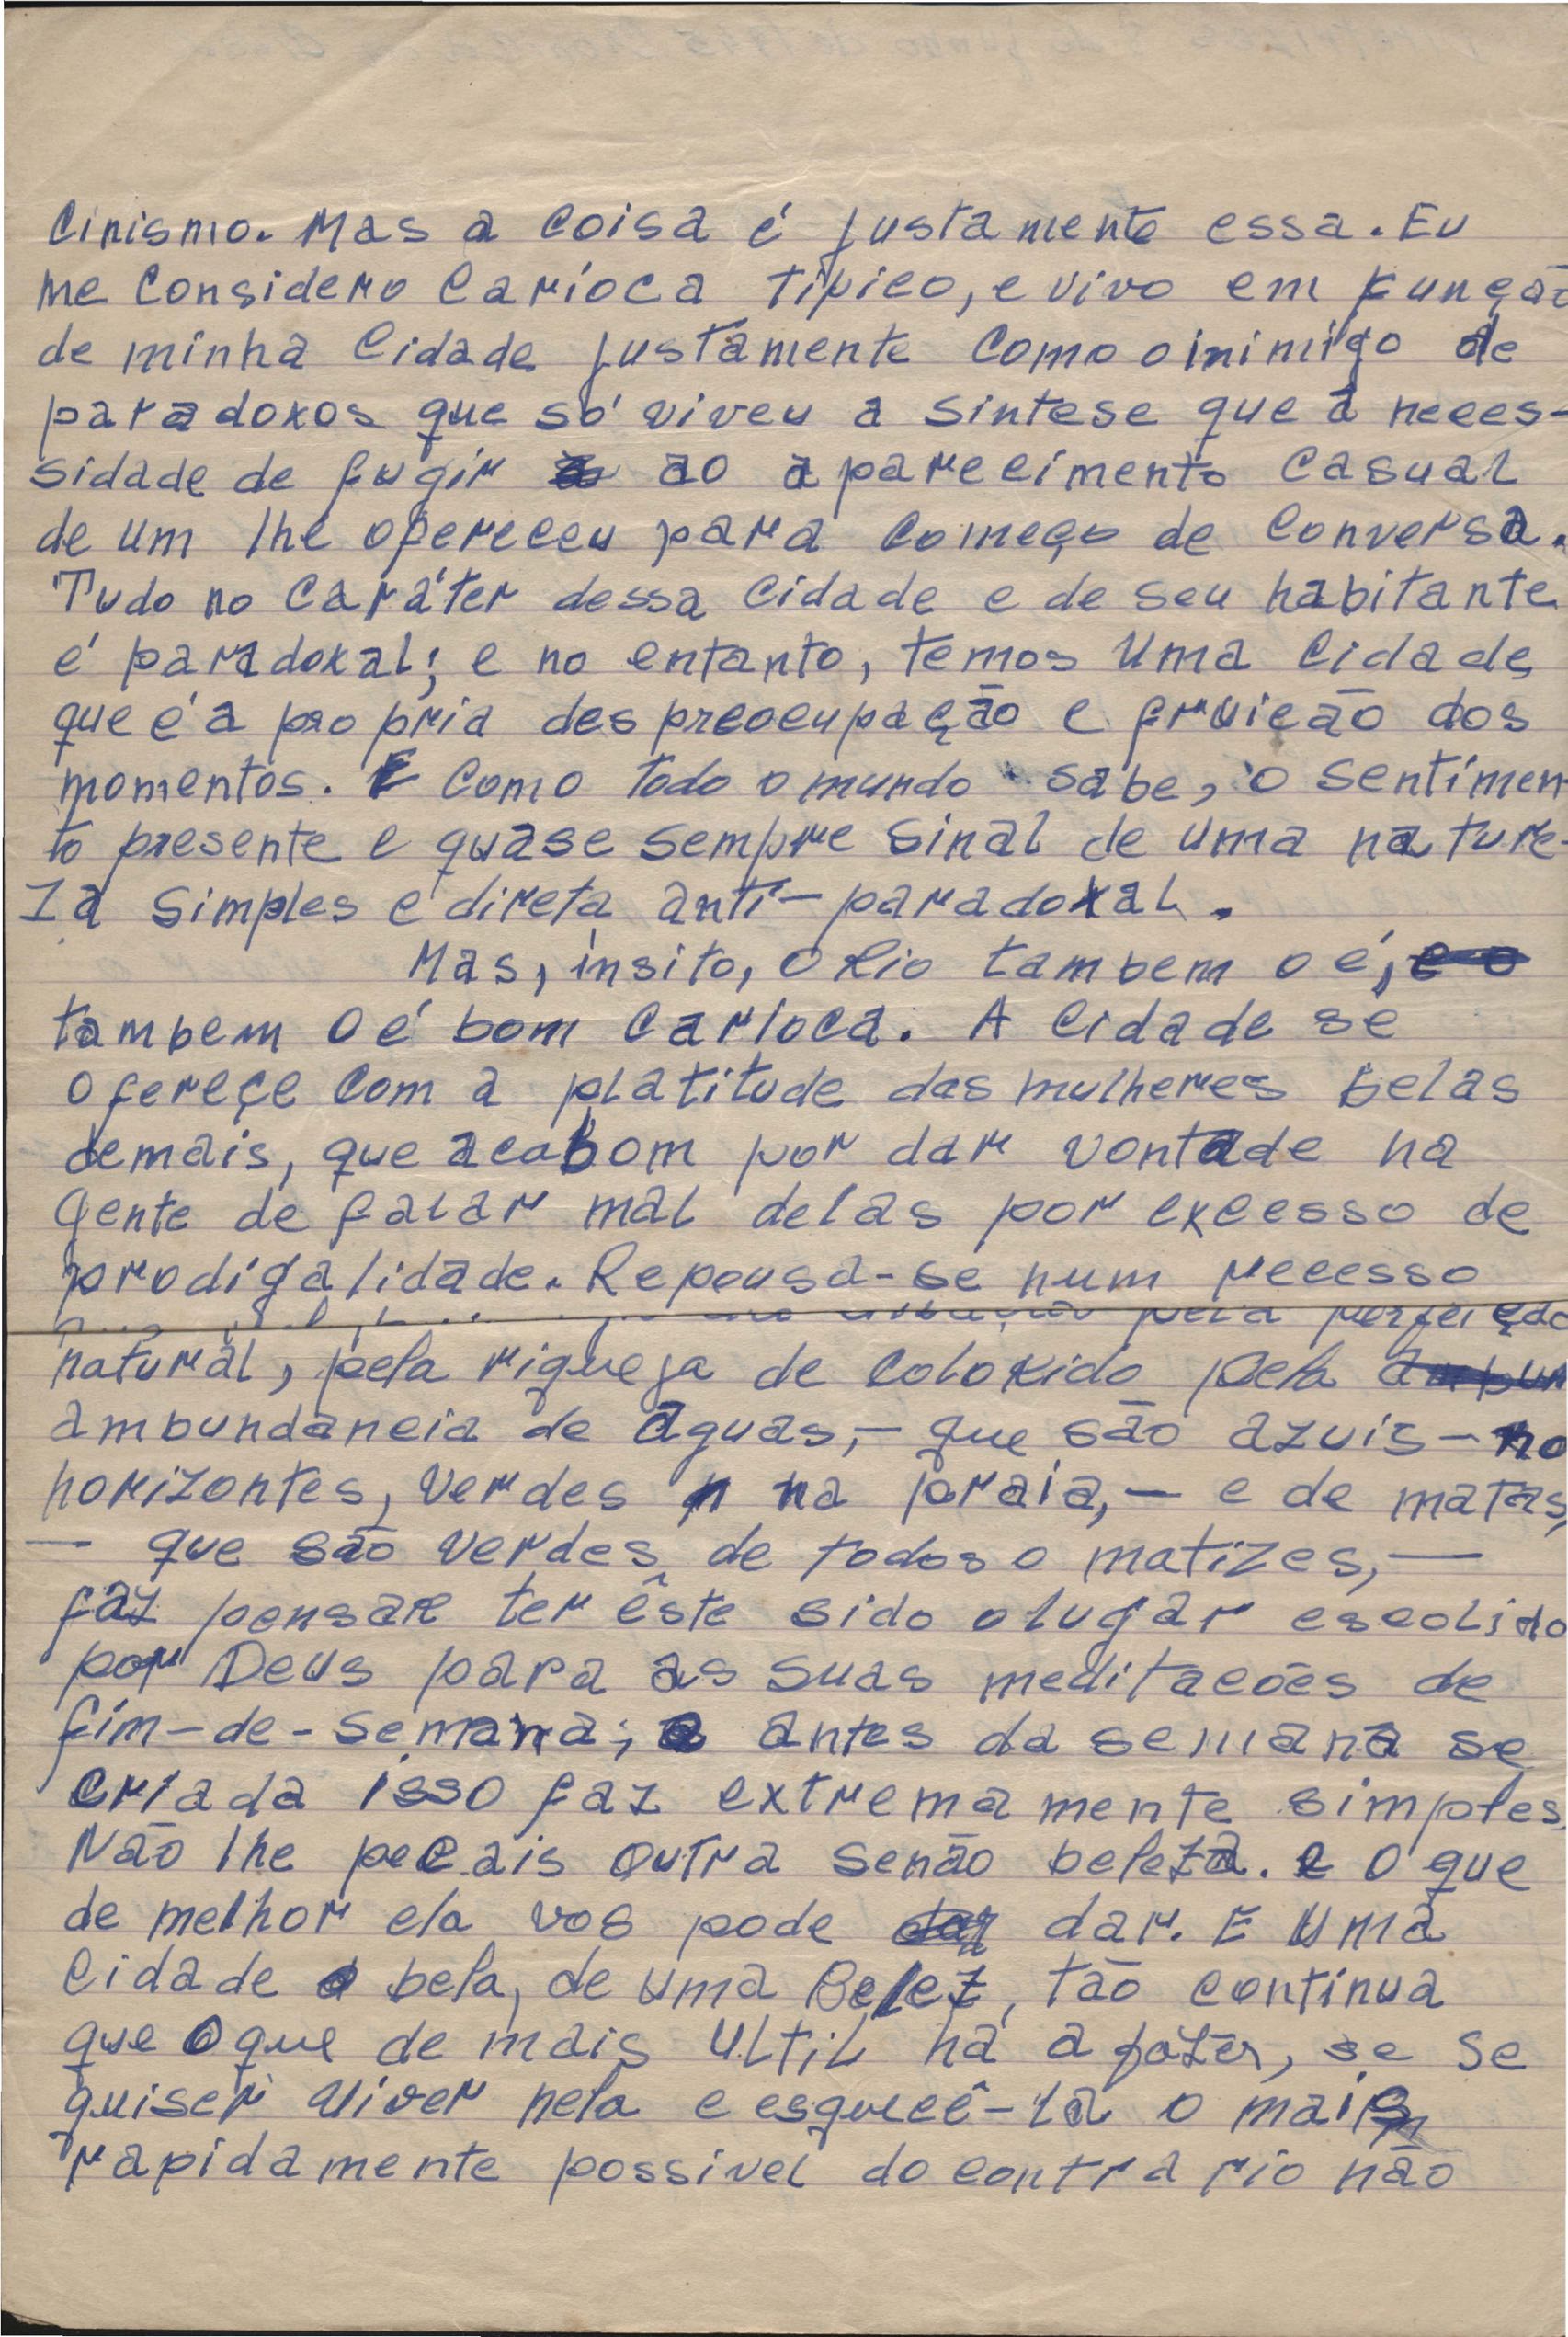 Cinismo. Mas a coisa é justamente essa. Eu
me considero Carioca tipico, e vivo em função
de minha Cidade justamente como o inimigo de
paradoxos que só viveu a sintese que a neces-
sidade de fugir ao aparecimento casual
de um lhe ofereceu para começo de conversa.
Tudo no caráter dessa cidade e de seu habitante
é paradoxal; e no entanto, temos uma cidade
que é a propria despreocupação e fruicão dos
momentos. E como todo o mundo sabe, o sentimen-
to presente e quase sempre sinal de uma nature-
za simples e direta anti-paradoxal.
Mas, insito, o Rio tambem o é, e o
tambem o é bom carioca. A cidade se
ofereçe com a platitude das mulheres belas
demais, que acabom por dar vontade na
gente de falar mal delas por excesso de
prodigalidade. Repousa-se num recesso
pela perfeição
natural, pela riqueja de colorido pela
ambundancia de aguas,- que são azuis - no
horizontes, verdes n na praia,- e de matas,
- que são verdes de todos o matizes,-
faz pensar ter êste sido o lugar escolido
por Deus para as suas meditacões de
fim-de-semana; a antes da semana se
criada isso faz extremamente simples
Não lhe pecais outra senão beleza. e o que
de melhor ela vos pode dar dar. E uma
cidade o bela, de uma Belez, tão continua
que o que de mais ultil há a fazer, se se
quiser viver nela e esquecê-la o mais
rapidamente possivel do contrario não